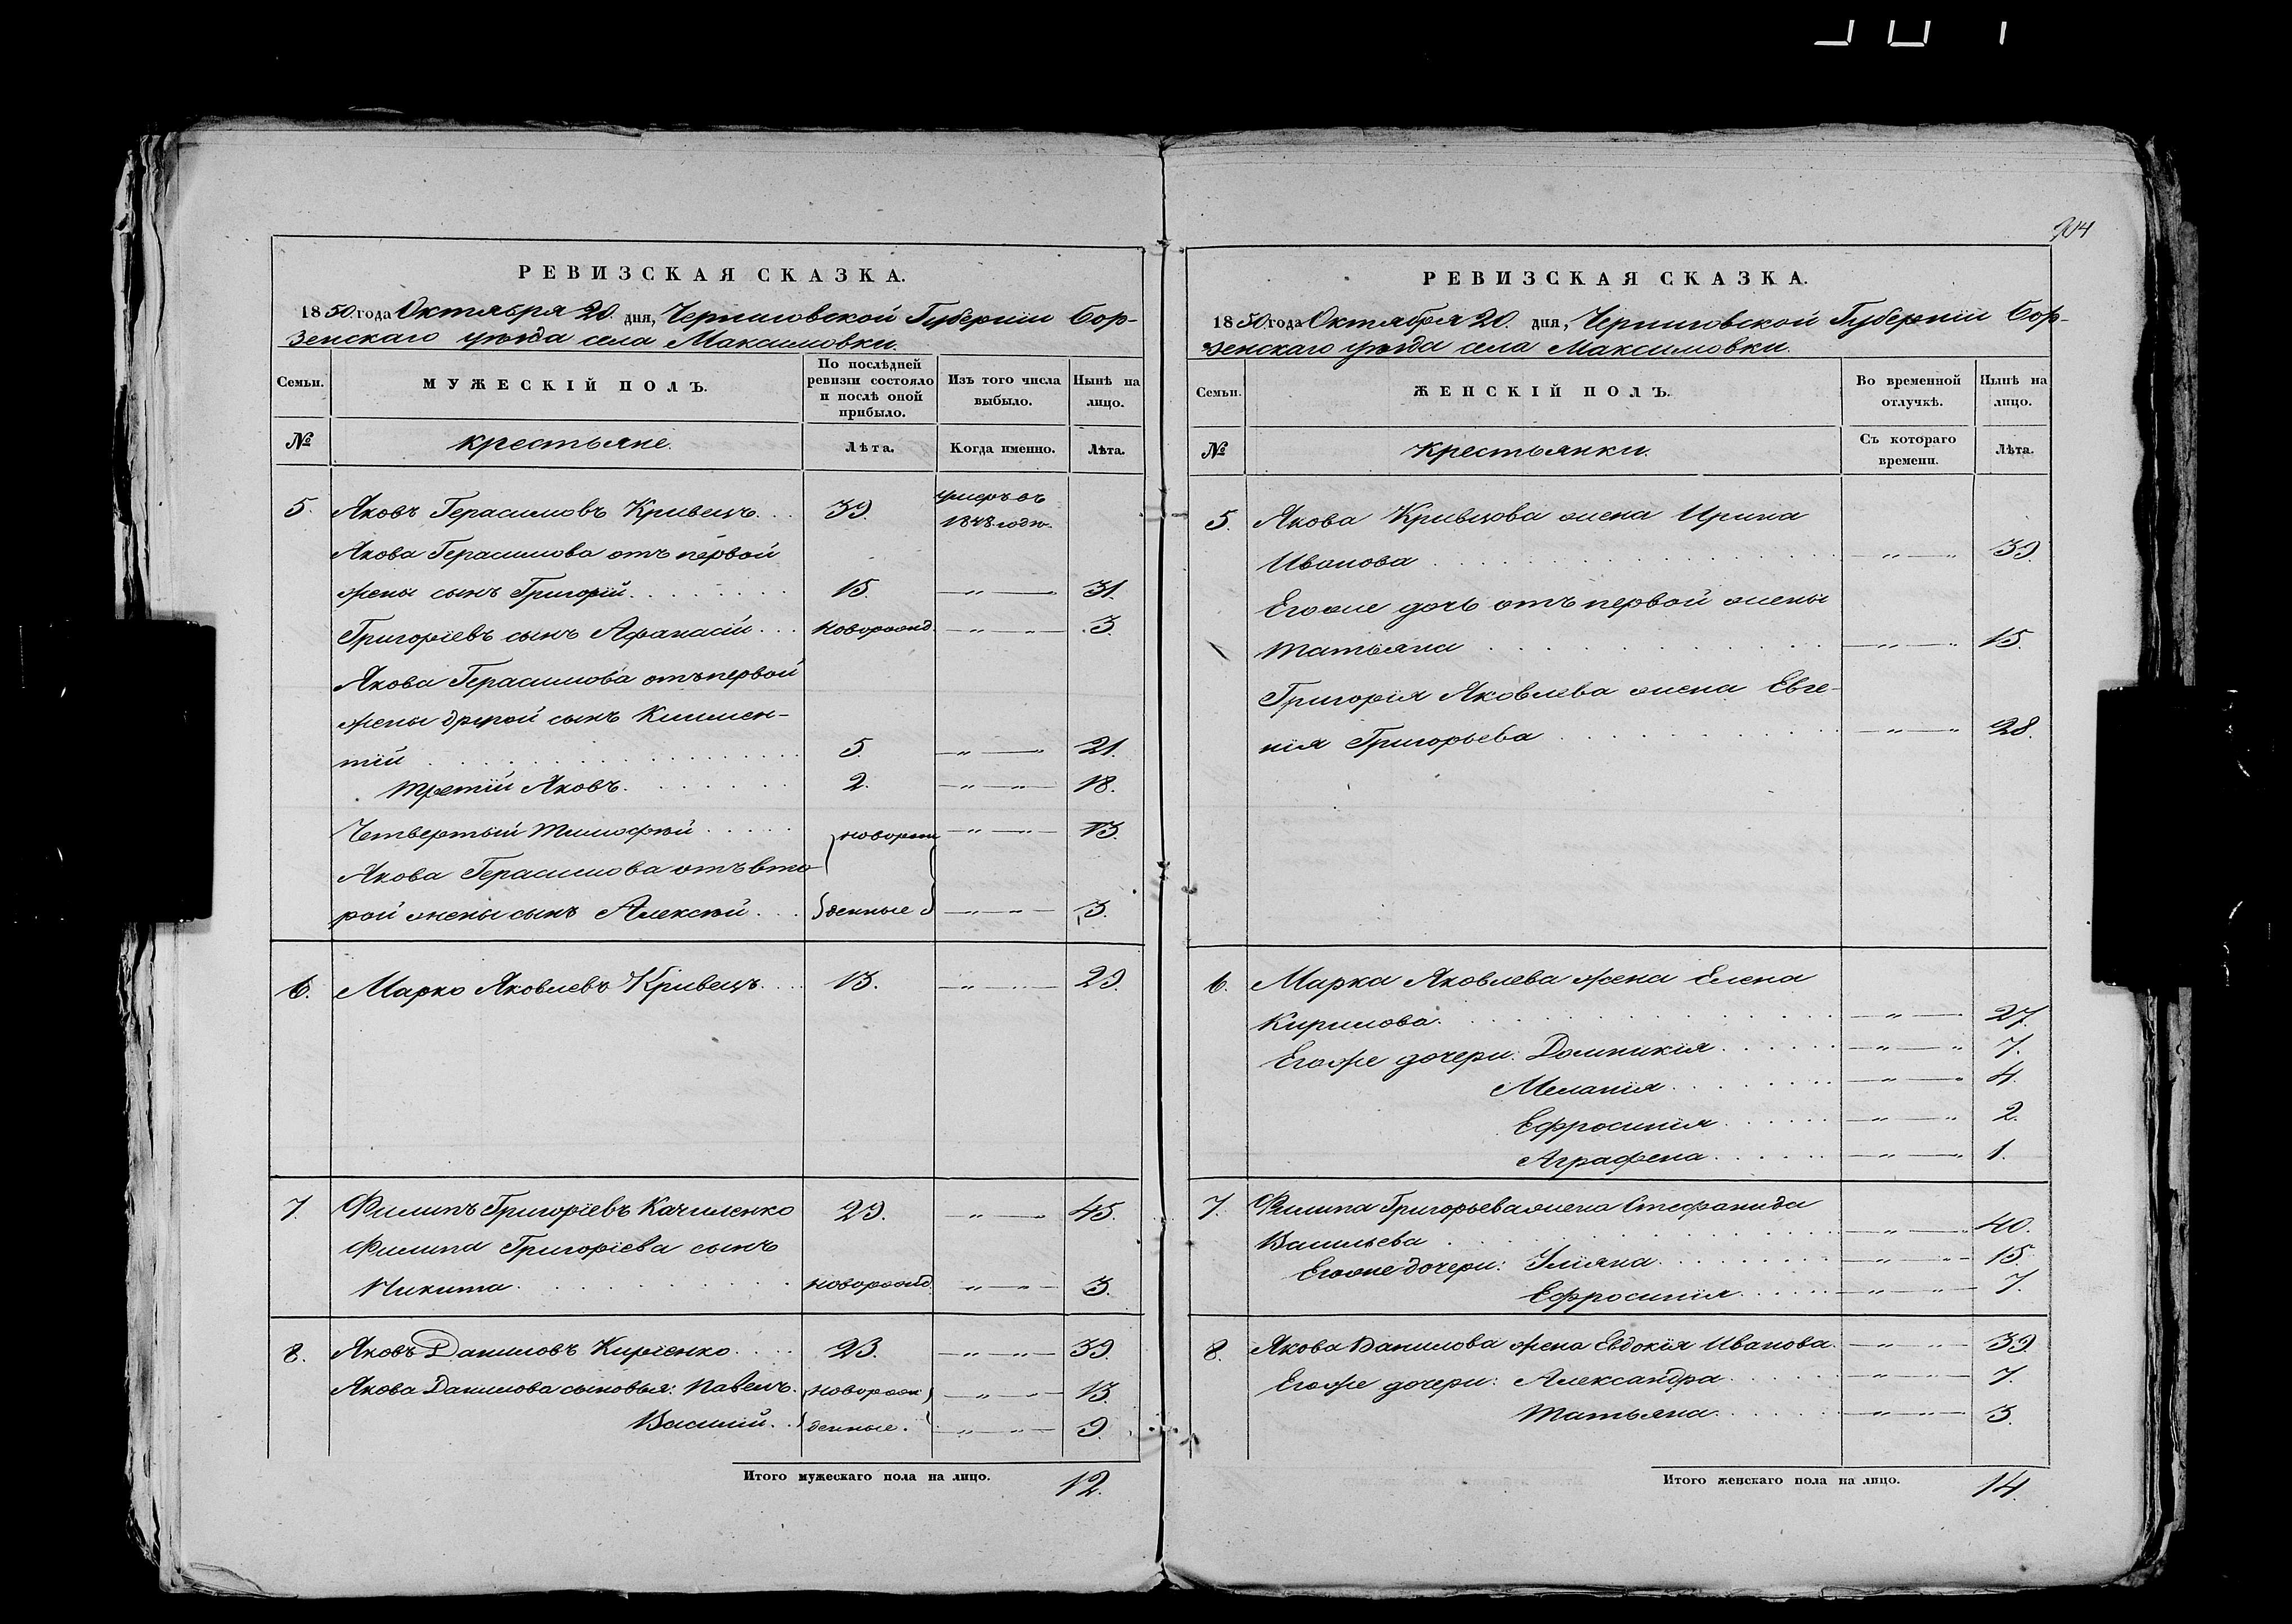 904
РЕВИЗСКАЯ СКАЗКА.
1850. года Октября 20. дня, Черниговской Губернии Бор-
зенскаго уѣзда села Максимовки.
Семьи.
МУЖЕСКІЙ ПОЛЪ.
По послѣдней ревизіи состояло и послѣ оной прибыло.
Изъ того числа выбыло.
Нынѣ на лицо.
№
крестьяне.
Лѣта.
Когда именно.
Лѣта.
5. Яковъ Герасимовъ Кривецъ. . . 39. умеръ въ 1848 годѣ.
Якова Герасимова отъ первой
жены сынъ Григорій. 15. „ — „ 31.
Григоріевъ сынъ Афанасій . . . новорожд. — „ „ — 3.
Якова Герасимова отъ первой
жены другой сынъ Климен-
тій 5. — „ — „ 21.
Третій Яковъ. 2. — „ „ — 18.
Четвертый Тимофѣй новорож — „ „ — 13.
Якова Герасимова отъ вто-
рой жены сынъ Алексѣй . . . денные — „ — 3.
6. Марко Яковлевъ Кривецъ. 13. — „ „ — 29.
7. Филипъ Григоріевъ Качиленко 29. — „ — „ 45.
Филипа Григоріева сынъ
Никита. новорожд. — „ „ — 3.
8. Яковъ Даниловъ Киріенко. 23. — „ „ — 39.
Якова Данилова сыновья: Павелъ. новорож — „ „ — 13.
Василій. денные. — „ „ — 9.
Итого мужескаго пола на лицо. 12.
РЕВИЗСКАЯ СКАЗКА.
1850 года Октября 20. дня, Черниговской Губерніи Бор-
зенскаго уѣзда села Максимовки.
Семьи.
ЖЕНСКІЙ ПОЛЪ.
Во временной отлучкѣ.
Нынѣ на лицо.
№
Крестьянки.
Съ котораго времени.
Лѣта.
5. Якова Кривцова жена Ирина
Иванова — „ — „ 39.
Егоже дочь отъ первой жены
Татьяна — „ — „ 15.
Григорія Яковлева жена Евге-
нія Григорьева — „ — „ 28.
6. Марка Яковлева жена Елена
Кирилова. — „ — „ 27.
Егоже дочери: Домникія — „ — „ 7.
Меланія — „ — „ 4.
Ефросинія — „ — „ 2.
Аграфена — „ — „ 1.
7. Филипа Григорьева жена Стефанида
Васильева — „ — „ 40.
Егоже дочери: Уліяна. — „ „ — 15.
Ефросинія — „ „ — 7.
8. Якова Данилова жена Евдокія Иванова. — „ „ — 39
Егоже дочери: Александра — „ „ — 7.
Татьяна. — „ „ — 3.
Итого женскаго пола на лицо. 14.